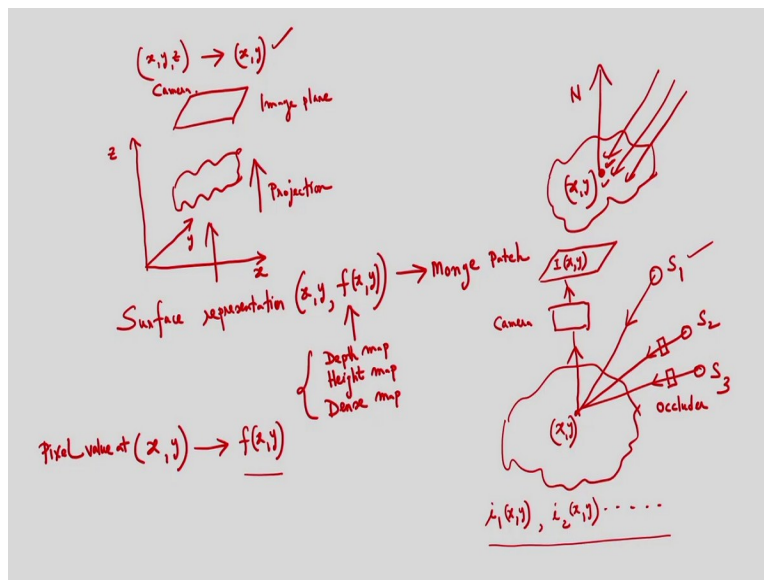 (x,y,z) → (x,y) ✓
Camera
Image plane
z
Projection
y
x
Surface representation (x,y, f(x,y)) → Monge Patch
Depth map
Height map
Dense map
Pixel value at (x,y) → f(x,y)
N
(x,y)
I(x,y)
S1 ✓
Camera
S2
S3
Occluder
(x,y)
i1(x,y), i2(x,y) ......